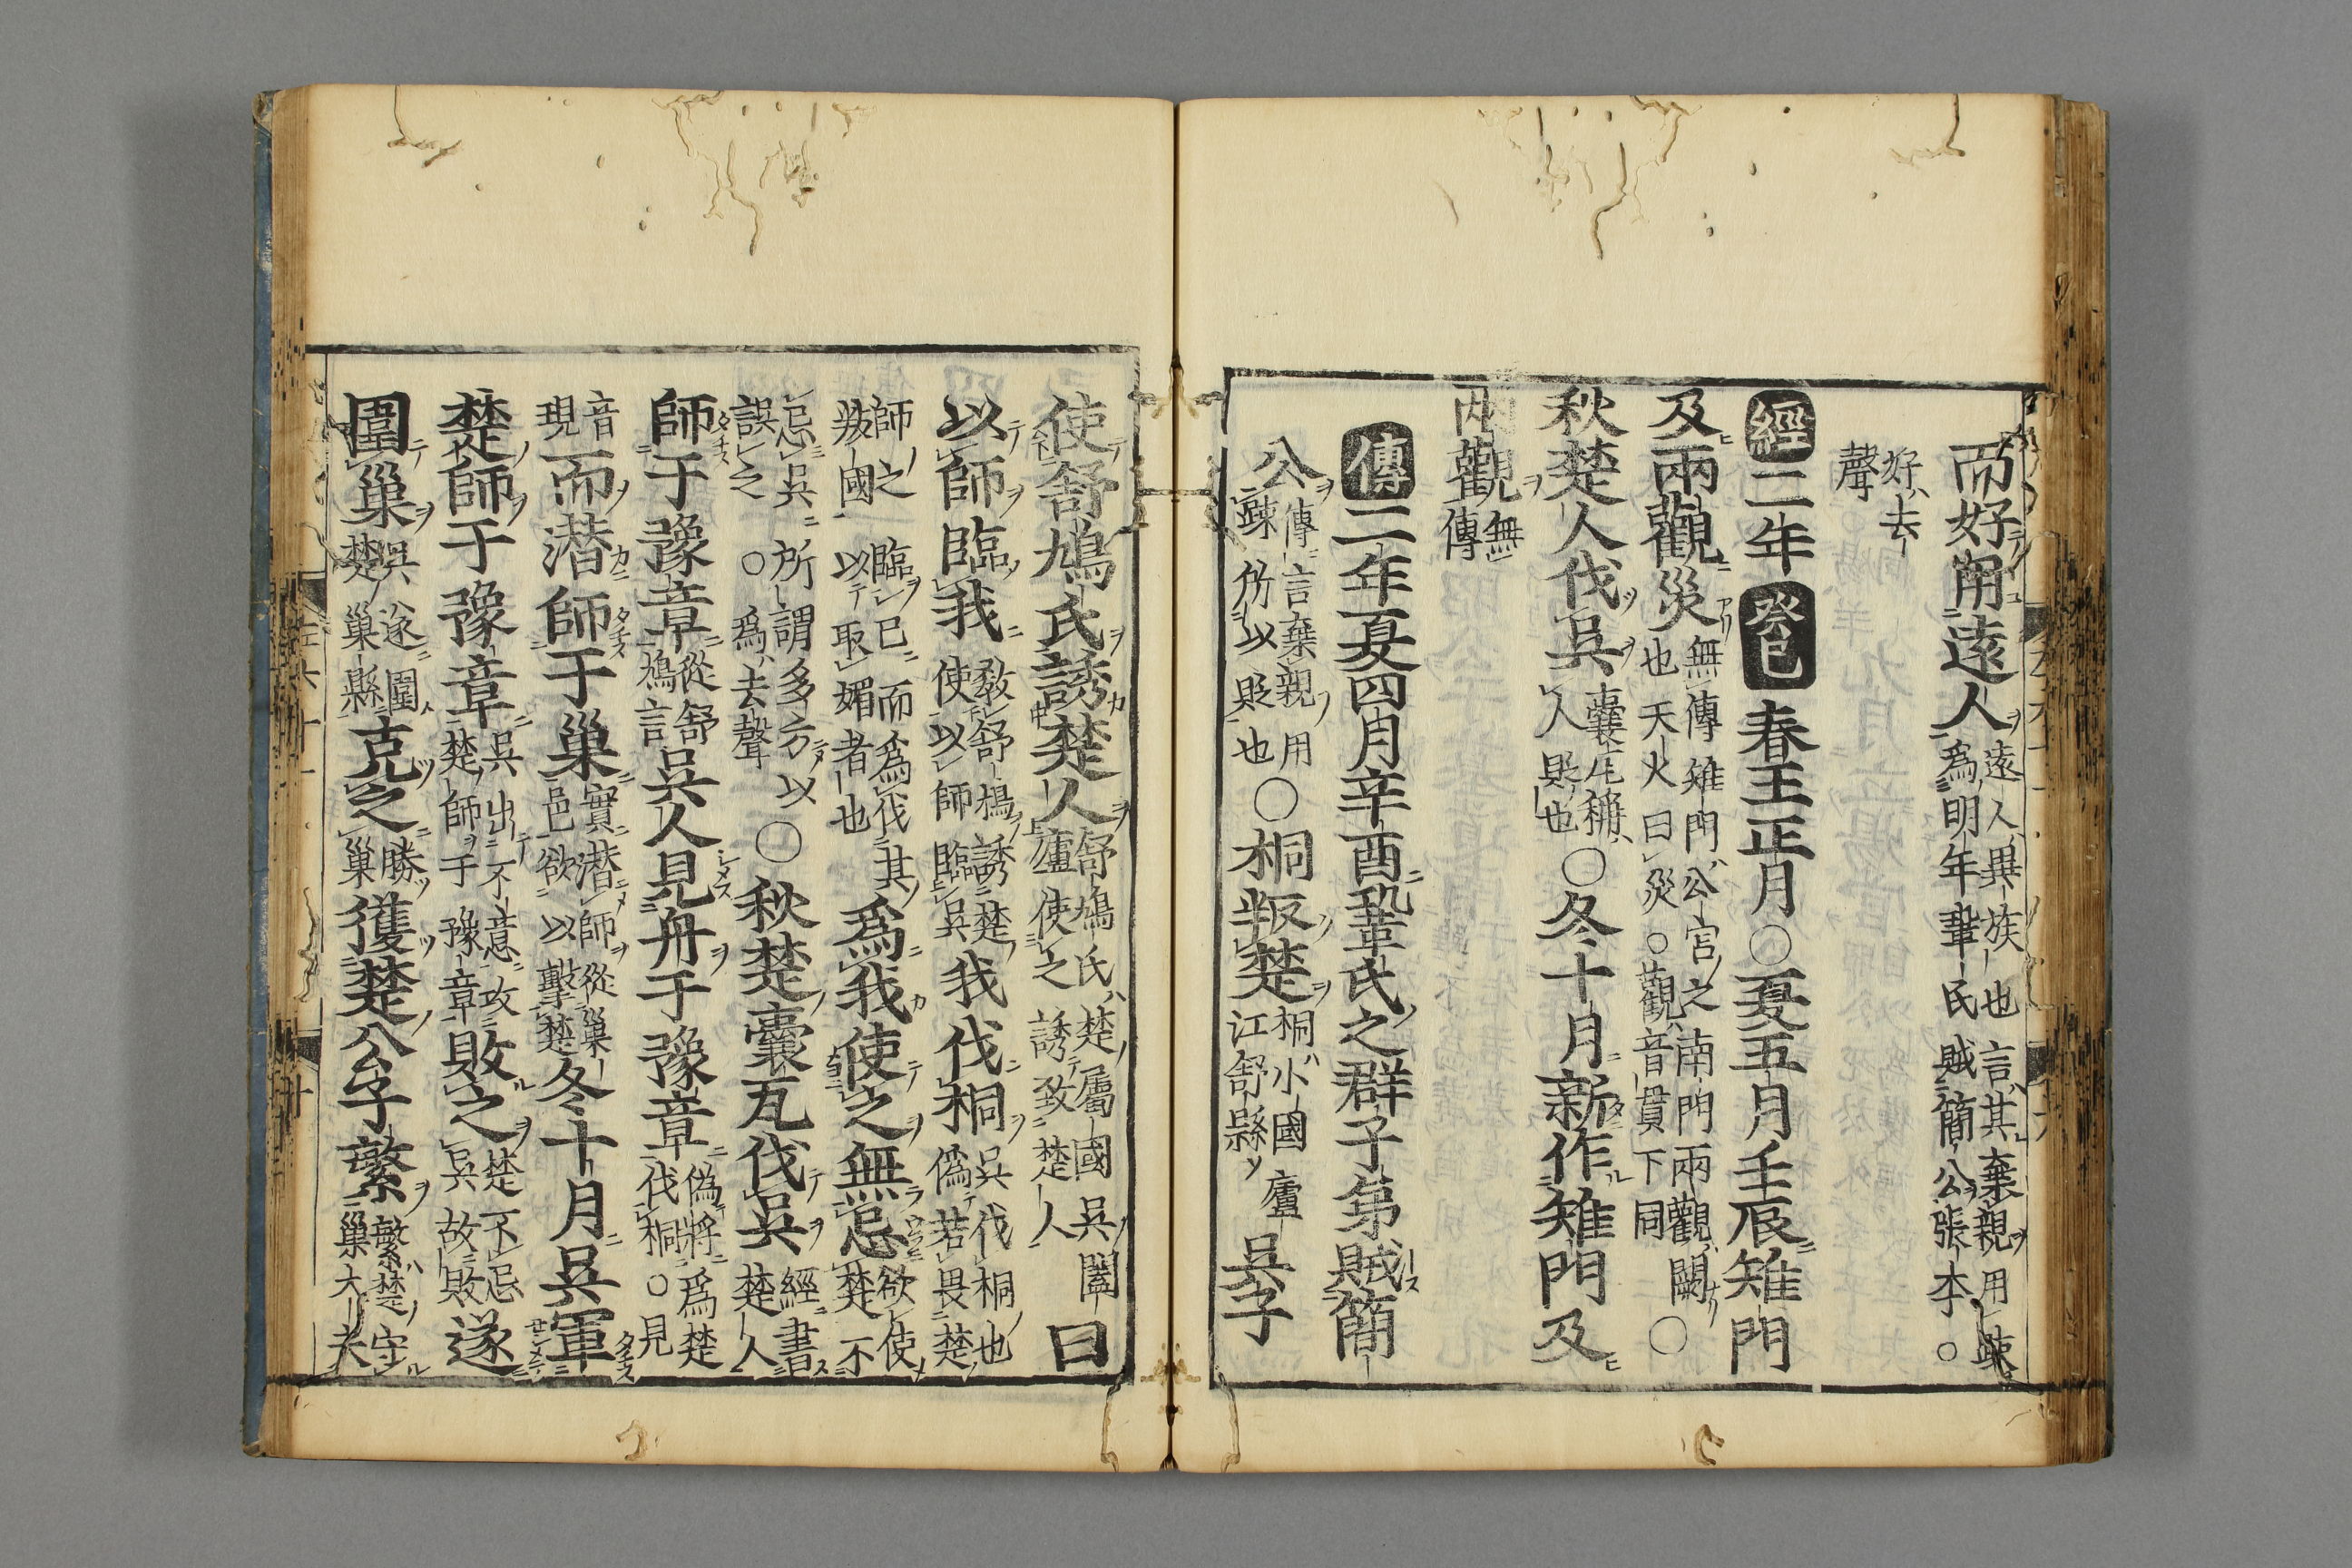 而好用遠人遠人異族也言其棄親用疎
爲明年鞏氏賊簡公張本○
好去
聲
經二年癸巳春王正月○夏五月壬辰雉門
及兩觀災無傳雉門公宮之南門兩觀闕○
也天火曰災○觀音貫下同
秋楚人伐吳囊瓦稱
人貶也○冬十月新作雉門及
兩觀無
傳
傳二年夏四月辛酉鞏氏之群子弟賊簡
公傳言棄親用
疎所以敗也○桐叛楚桐小國廬
江舒縣吳子
使舒鳩氏誘楚人舒鳩氏楚屬國吳闔
廬使之誘致楚人曰
以師臨我敎舒鳩誘楚
使以師臨吳我伐桐吳伐桐也
僞若畏楚
師之臨已而爲伐其
叛國以取媚者也爲我使之無忌欲使
楚不
忌吳所謂多方以
誤之○爲去聲○秋楚囊瓦伐吳經書
楚人
師于豫章從舒
鳩言吳人見舟于豫章僞將爲楚
伐桐○見
音
現而潛師于巢實潛師從巢
邑欲以擊楚冬十月吳軍
楚師于豫章吳出不意攻
楚師于豫章敗之楚不忌
吳故敗遂
圍巢吳遂圍
楚巢縣克之勝
巢獲楚公子繁繁楚守
巢大夫